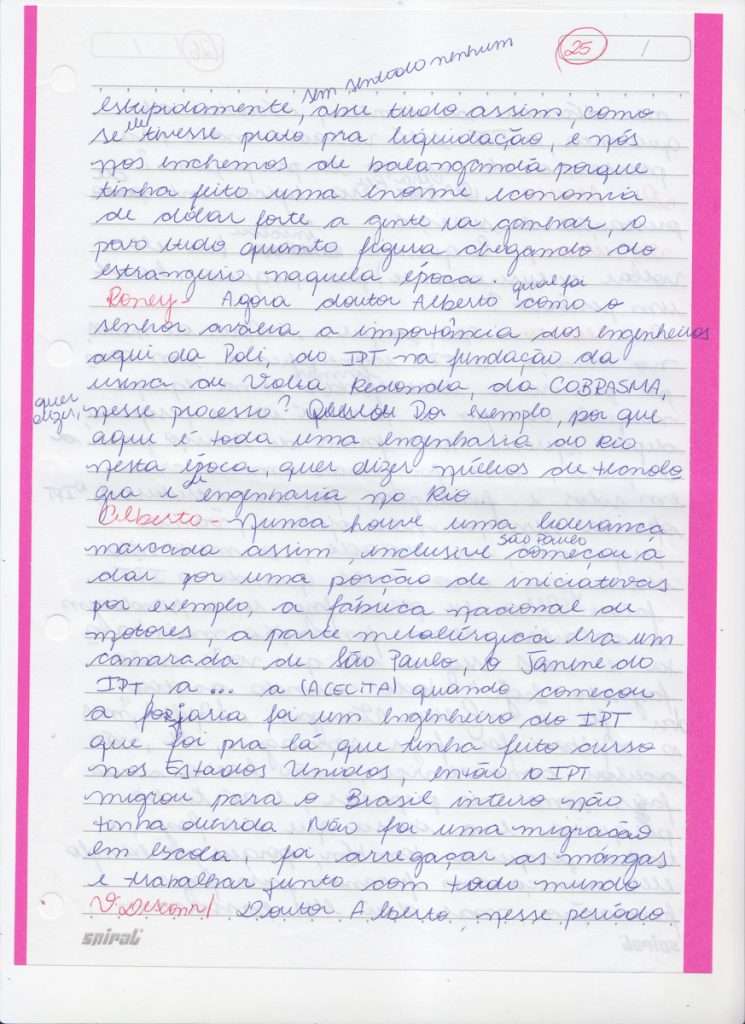 25
sem sentido nenhum
estupidamente, abre tudo assim, como
se ele tivesse prato pra liquidação, e nós
nos enchemos de balangandã porque
tinha feito uma enorme economia
de dólar forte a gente ia ganhar, o
povo tudo quanto figura chegando do
estrangeiro naquela época.
Roney - Agora doutor Alberto qual foi como o
senhor avalia a importância dos engenheiros
aqui da Poli, do IPT na fundação da
usina de Volta Redonda, da COBRASMA,
quer dizer, nesse processo? Por exemplo, por que
aqui é toda uma engenharia do Rio
nesta época, quer dizer núcleos de tecnolo
gia e de engenharia no Rio
Alberto - Nunca houve uma liderança
marcada assim, inclusive São Paulo começou à
dar por uma porção de iniciativas
por exemplo, a fábrica nacional de
motores, a parte metalúrgica era um
camarada de São Paulo, o Janine do
IPT, a ... a (ACECITA) quando começou
a forjaria foi um engenheiro do IPT
que foi pra lá, que tinha feito curso
nos Estados Unidos, então o IPT
migrou para o Brasil inteiro não
tinha dúvida Não foi uma migração
em escola, foi arregaçar as mangas
e trabalhar junto com todo mundo
V. Desconh/ Doutor Alberto, nesse período
spiral